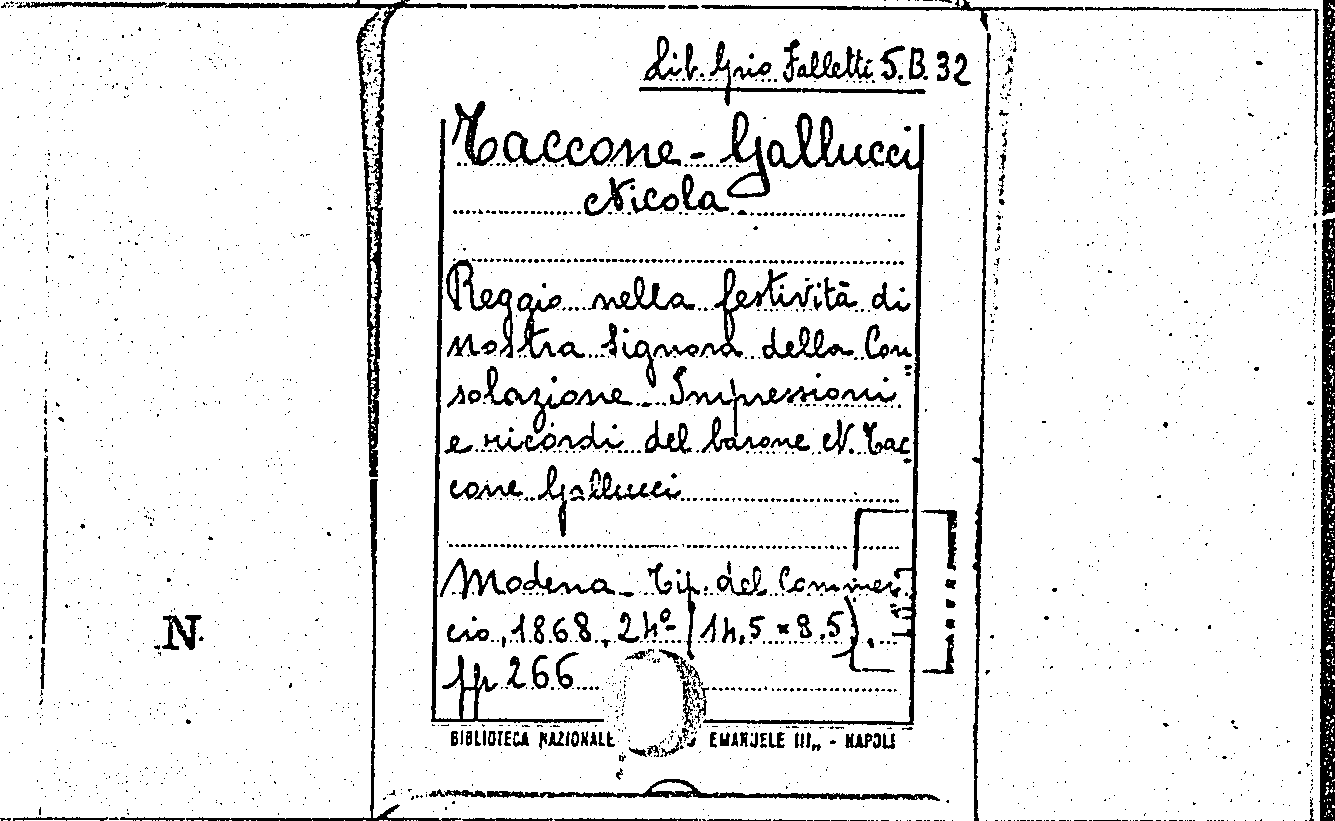 Lib. Grio Falletti 5.B.32
Taccone-Gallucci
Nicola.
Reggio nella festività di
nostra Signora della Con
solazione. Impressioni
e ricordi del barone N. Tac
cone Gallucci
Modena. Tip. del Commer
cio, 1868, 24º (14,5 x 8,5).
pp 266
BIBLIOTECA NAZIONALE EMANUELE III„ - NAPOLI
N